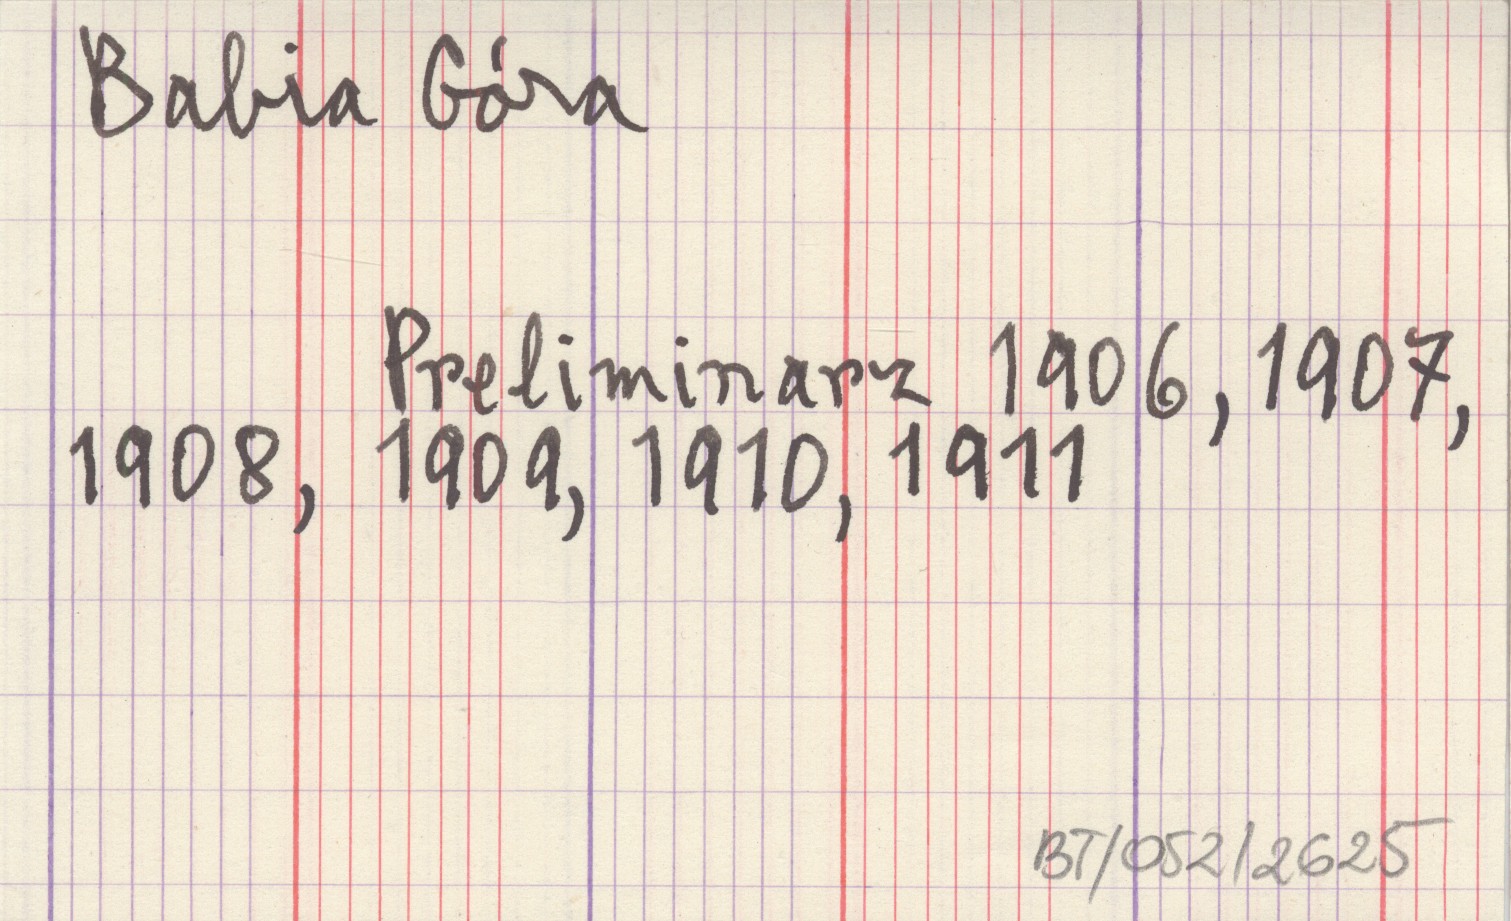 Babia Góra
Preliminarz 1906, 1907,
1908, 1909, 1910, 1911
BT/052/2625